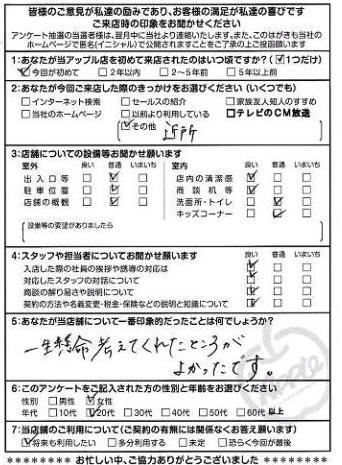 皆様のご意見が私達の励みであり、お客様の満足が私達の喜びです
ご来店時の印象をお聞かせください
アンケート抽選の当選者様は、翌月中に当社より連絡いたします。また、このはがきも当社の
ホームページで匿名(イニシャル)で公開されますことをご了承の上ご投函願います
1:あなたが当アップル店を初めて来店されたのはいつ頃ですか?(☑1つだけ)
☑今回が初めて □2年以内 □2～5年前 □5年以上前
2:あなたが今回ご来店した時のきっかけをお選びください(いくつでも)
□インターネット検索 □セールスの紹介 □家族友人知人のすすめ
□当社のホームページ □以前より利用している □テレビのCM放送
☑その他 近所
3:店舗についての設備等お聞かせ願います
室外 良い 普通 いまいち 室内 良い 普通 いまいち
出入口等 □ ☑ □ 店内の清潔感 ☑ □ □
駐車位置 □ ☑ □ 商談机等 ☑ □ □
店舗の概観 □ ☑ □ 洗面所・トイレ □ ☑ □
キッズコーナー □ ☑ □
設備等の要望がありましたら
4:スタッフや担当者についてお聞かせ願います 良い 普通 いまいち
入店した際の社員の挨拶や誘導の対応は ☑ □ □
対応したスタッフの対話について ☑ □ □
商談の解り易さや説明について ☑ □ □
契約の方法や名義変更・税金・保険などの説明と知識について ☑ □ □
5:あなたが当店舗について一番印象的だったことは何でしょうか?
一生懸命考えてくれたところが
よかったです。
Apple
6:このアンケートをご記入された方の性別と年齢をお選びください
性別 □男性 ☑女性
年代 □10代 ☑20代 □30代 □40代 □50代 □60代 以上
7:当店舗のご利用について(ご契約の有無には関係なくお答え願います)
☑将来も利用したい □多分利用する □未定 □恐らく今回が最後
******** お忙しい中、ご協力ありがとうございました ********